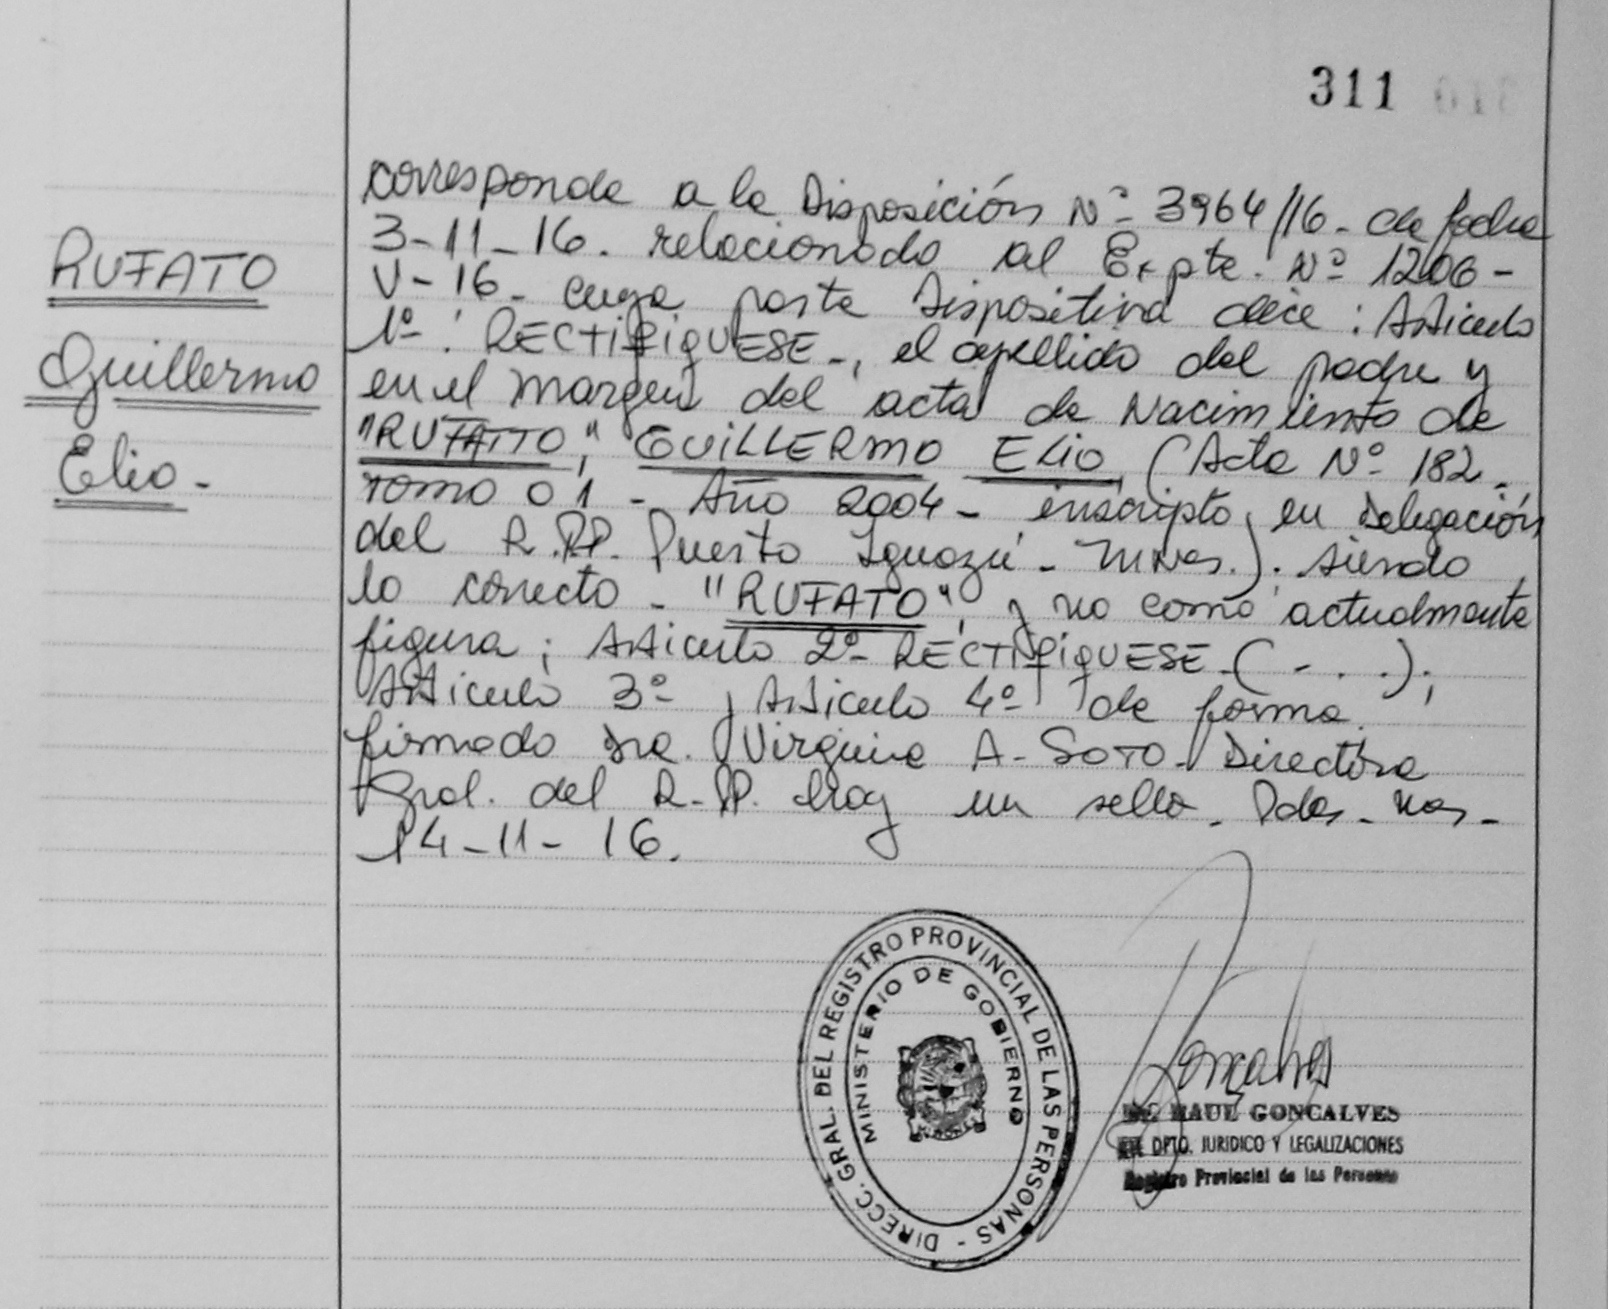 311
RUFATO
Guillermo
Elio.-
corresponde a la Disposición Nº 3964/16 - de fecha
3-11-16. relacionado al Expte. Nº 1206-
V-16. cuya parte Dispositiva dice: Artículo
1º: RECTIFIQUESE-, el apellido del padre y
en el margen del acta de Nacimiento de
"RUFATTO", GUILLERMO ELIO, (Acta Nº 182.
Tomo 01 - Año 2004 - inscripto, en Delegación
del R.PP. Puerto Iguazú - Mnes.). siendo
lo correcto - "RUFATO", y no como actualmente
figura; Artículo 2º- RECTIFIQUESE-(-...);
Artículo 3º y Artículo 4º de forma.
firmado Dra. Virginia A- SOTO- Directora
Gral. del R-PP. Hay un sello. Pdas. Mnes-
14-11-16.
DIRECC. GRAL. DEL REGISTRO PROVINCIAL DE LAS PERSONAS -
MINISTERIO DE GOBIERNO
RAUL GONCALVES
DPTO. JURIDICO Y LEGALIZACIONES
Registro Provincial de las Personas